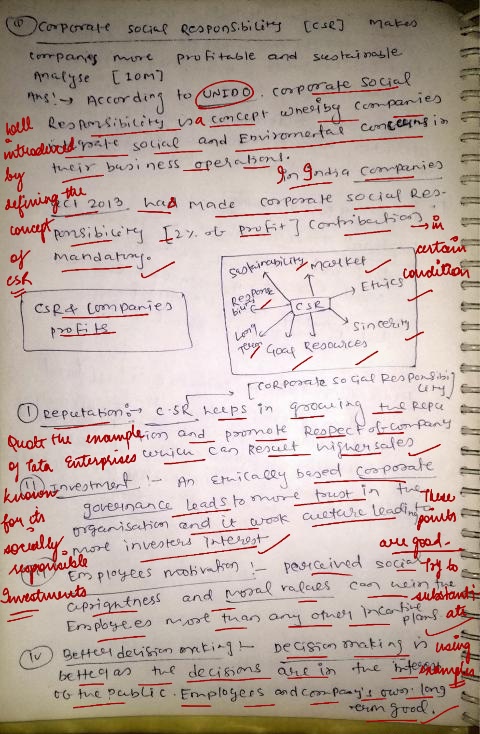 Corporate Social Responsibility [CSR] makes
companies more profitable and sustainable
Analyse [10M]
Ans:→ According to UNIDO. Corporate Social
Responsibility is a concept whereby companies
social and Enviromental concerns in
their business operations.
In India companies
Act 2013 had made corporate social Res-
ponsibility [2% of profit] contribution
mandatory.
→ in certain condition
Well
introduced
by
defining the
concept
of
CSR
CSR & Companies
profits
Sustainability
market
Ethics
CSR
Sincerity
Resources
Goal
Long
Term
[Corporate social Responsibi
lity]
(i) Reputation:→ CSR helps in growing the Repu
and promote Respect of company
which can Result higher sales
Quote the example
of Tata Enterprises
known
for its
socially
responsible
Investments
(ii) Investment :- An ethically based corporate
governance leads to more trust in the
organisation and it work culture leading
more investers interest
These
points
are good.
Try to
substanti
ate
using
examples
Employees motivation :- perceived social
uprightness and moral values can the
Employees more than any other Incentive
plans
(iv) Better decision making :- Decision making is
better as the decisions are in the
of the public. Employees and company's own long
term good.